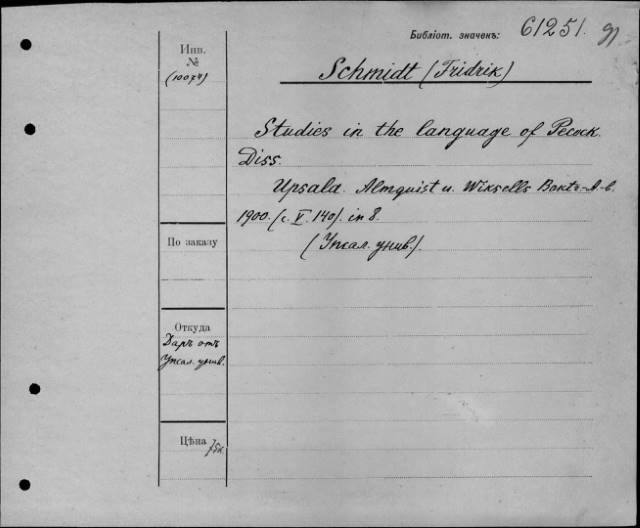 Библіот. значенъ: 61251.
Инв.
№
(10074)
Schmidt (Fridrik)
Studies in the language of Pecock.
Diss.
Upsala. Almquist u. Wiksells Boktr. A-b.
1900. (c. V. 140). in 8.
(Упсал. унив.).
По заказу
Откуда
Даръ отъ
Упсал. унив.
Цѣна 75к.